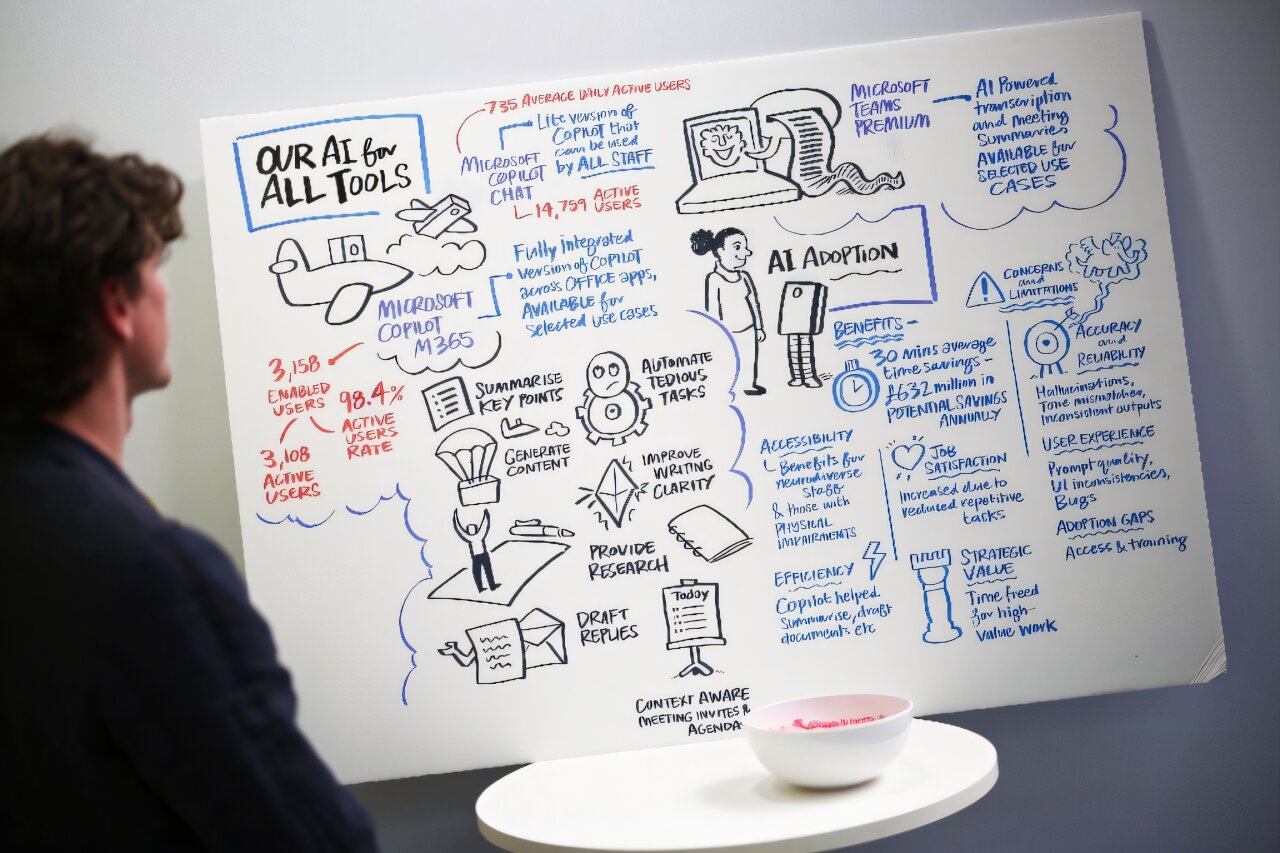 OUR AI for
ALL TOOLS
735 AVERAGE DAILY ACTIVE USERS
Lite version of
COPILOT that
can be used
by ALL STAFF
MICROSOFT
COPILOT
CHAT
14,759 ACTIVE
USERS
Fully integrated
version of COPILOT
across OFFICE apps,
AVAILABLE for
selected use cases
MICROSOFT
COPILOT
M365
3,158
ENABLED
USERS
98.4%
ACTIVE
USERS
RATE
3,108
ACTIVE
USERS
SUMMARISE
KEY POINTS
AUTOMATE
TEDIOUS
TASKS
GENERATE
CONTENT
IMPROVE
WRITING
CLARITY
PROVIDE
RESEARCH
DRAFT
REPLIES
Today
CONTEXT AWARE
MEETING INVITES &
AGENDA
MICROSOFT
TEAMS
PREMIUM
AI Powered
transcription
and meeting
summaries
AVAILABLE for
SELECTED USE
CASES
AI ADOPTION
BENEFITS -
30 mins average
time savings -
£632 million in
POTENTIAL SAVINGS
ANNUALLY
ACCESSIBILITY
Benefits for
neurodiverse
staff
& those with
PHYSICAL
IMPAIRMENTS
JOB
SATISFACTION
Increased due to
reduced repetitive
tasks
EFFICIENCY
Copilot helped
summarise, draft
documents etc
STRATEGIC
VALUE
Time freed
for high-
value work
CONCERNS
and
LIMITATIONS
ACCURACY
and
RELIABILITY
Hallucinations,
Tone mismatches,
Inconsistent outputs
USER EXPERIENCE
Prompt quality,
UI inconsistencies,
Bugs
ADOPTION GAPS
Access & training